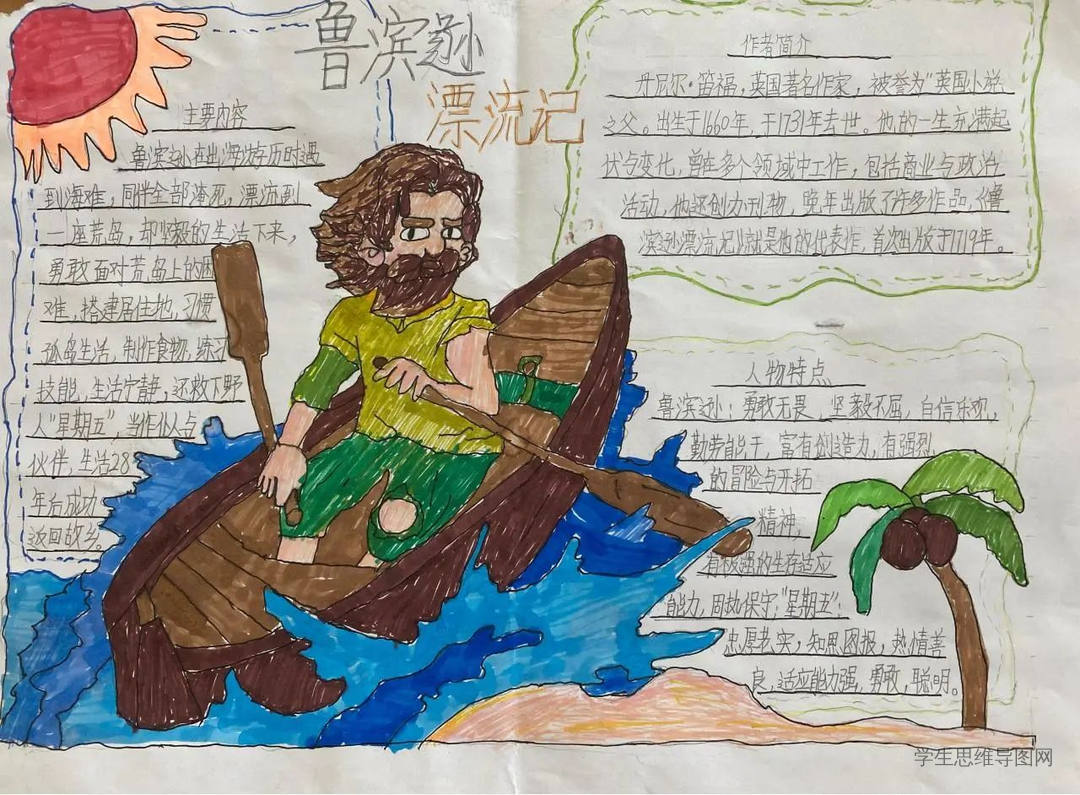 鲁滨逊
漂流记
主要内容
鲁滨逊在出海游历时遇
到海难，同伴全部淹死，漂流到
一座荒岛，却坚毅的生活下来，
勇敢面对荒岛上的困
难，搭建居住地，习惯
孤岛生活，制作食物，练习
技能，生活宁静，还救下野
人“星期五”，当作仆人与
伙伴，生活28
年后成功
返回故乡
作者简介
丹尼尔·笛福，英国著名作家，被誉为“英国小说
之父。出生于1660年，于1731年去世。他的一生充满起
伏与变化，曾在多个领域中工作，包括商业与政治
活动，他还创办刊物，晚年出版了许多作品，《鲁
滨逊漂流记》就是他的代表作，首次出版于1719年。
人物特点
鲁滨逊：勇敢无畏，坚毅不屈，自信乐观，
勤劳能干，富有创造力，有强烈
的冒险与开拓
精神，
有极强的生存适应
能力，固执保守；“星期五”：
忠厚老实，知恩图报，热情善
良，适应能力强，勇敢，聪明。
学生思维导图网